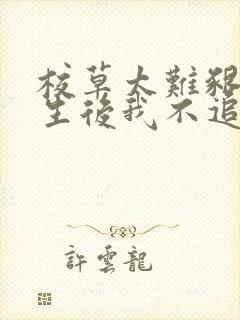 校草太難
生後我不追
許雲龍